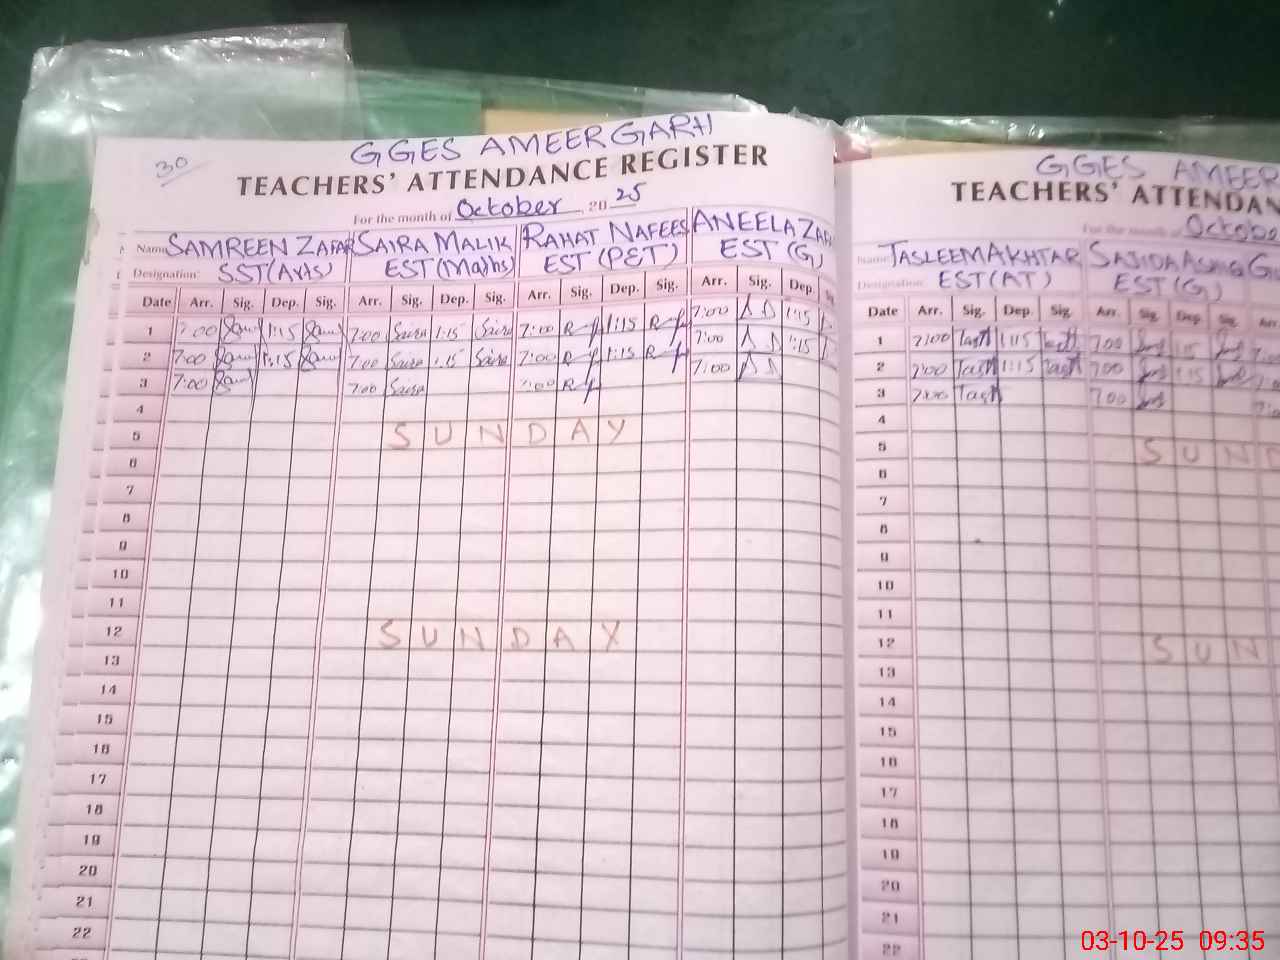 30
GGES AMEER GARH
TEACHERS' ATTENDANCE REGISTER
For the month of October 20 25
Name SAMREEN ZAFAR SAIRA MALIK RAHAT NAFEES ANEELA ZAFA
Designation: SST(Arts) EST(Maths) EST (PET) EST (G)
Date Arr. Sig. Dep. Sig. Arr. Sig. Dep. Sig. Arr. Sig. Dep. Sig. Arr. Sig. Dep.
1 7:00 1:15 7:00 Saira 1:15 Saira 7:00 1:15 7:00 1:15
2 7:00 1:15 7:00 Saira 1:15 Saira 7:00 1:15 7:00 1:15
3 7:00 7:00 Saira 7:00 7:00
4
5 SUNDAY
6
7
8
9
10
11
12 SUNDAY
13
14
15
16
17
18
19
20
21
22
GGES AMEER
TEACHERS' ATTENDAN
For the month of Octobe
Name TASLEEM AKHTAR SAJIDA
Designation: EST(AT) EST(G)
Date Arr. Sig. Dep. Sig. Arr. Sig. Dep. Sig.
1 7:00 Tash 1:15 Tash 7:00 1:15
2 7:00 Tash 1:15 Tash 7:00 1:15
3 7:00 Tash 7:00
4
5 SUND
6
7
8
9
10
11
12 SUN
13
14
15
16
17
18
19
20
21
22
03-10-25 09:35